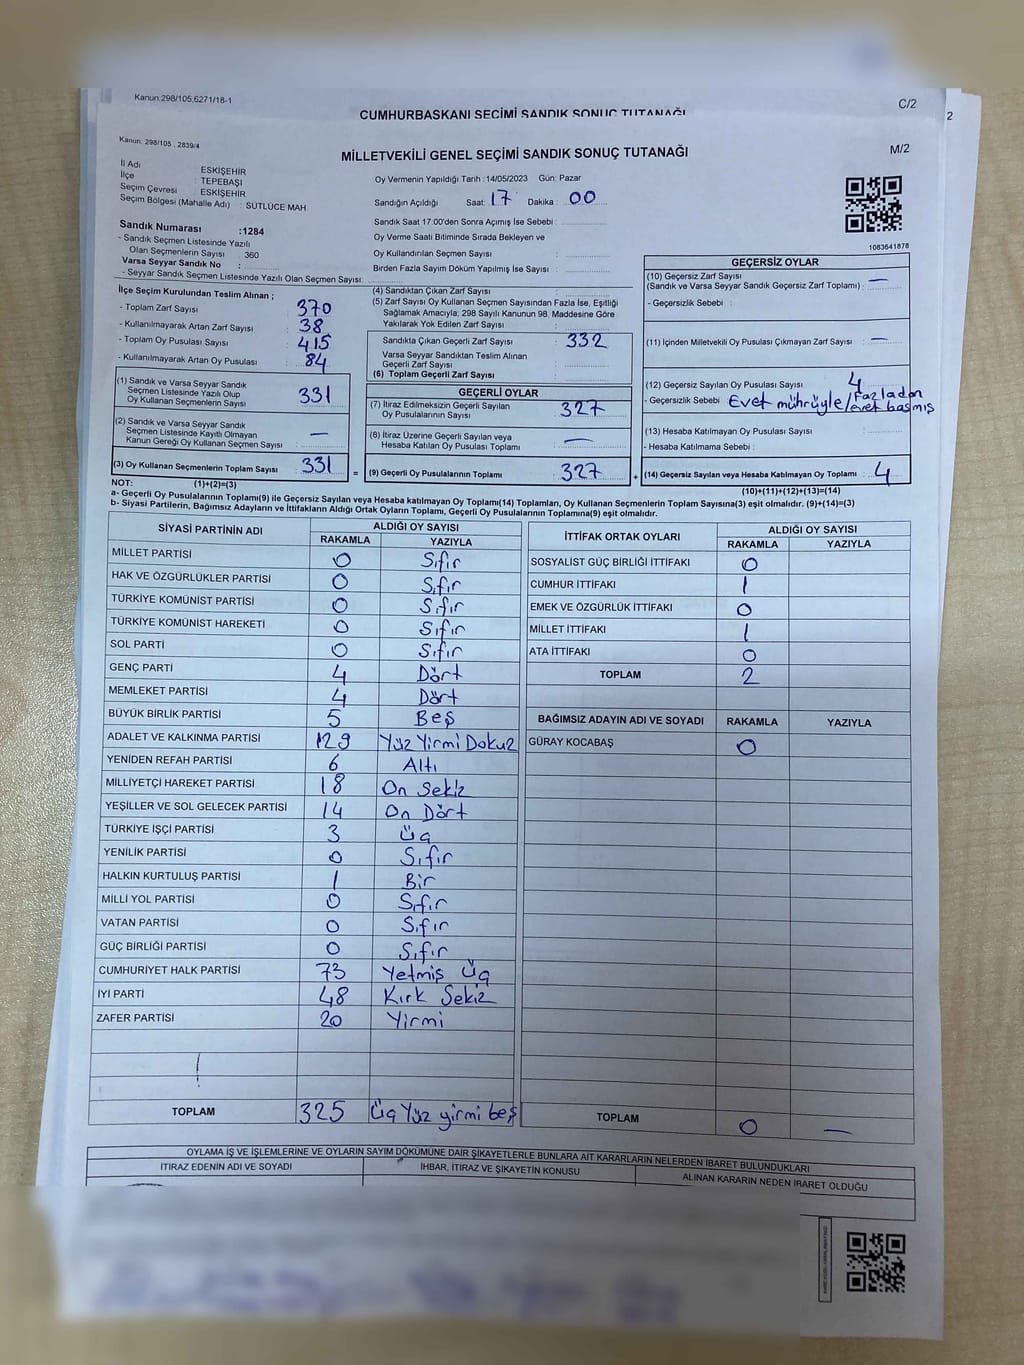 Kanun:298/105;6271/18-1
C/2
2
CUMHURBAŞKANI SEÇİMİ SANDIK SONUÇ TUTANAĞI
Kanun: 298/105 , 2839/4
M/2
MİLLETVEKİLİ GENEL SEÇİMİ SANDIK SONUÇ TUTANAĞI
İl Adı ESKİŞEHİR
İlçe : TEPEBAŞI
Seçim Çevresi : ESKİŞEHİR
Seçim Bölgesi (Mahalle Adı) : SÜTLÜCE MAH
Oy Vermenin Yapıldığı Tarih :14/05/2023 Gün: Pazar
Sandığın Açıldığı Saat: 17 Dakika : 00
Sandık Saat 17:00'den Sonra Açılmış İse Sebebi :
Oy Verme Saati Bitiminde Sırada Bekleyen ve
Oy Kullandırılan Seçmen Sayısı :
Birden Fazla Sayım Döküm Yapılmış İse Sayısı :
1083641878
Sandık Numarası :1284
- Sandık Seçmen Listesinde Yazılı
Olan Seçmenlerin Sayısı : 360
Varsa Seyyar Sandık No :
- Seyyar Sandık Seçmen Listesinde Yazılı Olan Seçmen Sayısı:
İlçe Seçim Kurulundan Teslim Alınan ;
- Toplam Zarf Sayısı : 370
- Kullanılmayarak Artan Zarf Sayısı : 38
- Toplam Oy Pusulası Sayısı : 415
- Kullanılmayarak Artan Oy Pusulası : 84
(1) Sandık ve Varsa Seyyar Sandık
Seçmen Listesinde Yazılı Olup
Oy Kullanan Seçmenlerin Sayısı : 331
(2) Sandık ve Varsa Seyyar Sandık
Seçmen Listesinde Kayıtlı Olmayan
Kanun Gereği Oy Kullanan Seçmen Sayısı : —
(3) Oy Kullanan Seçmenlerin Toplam Sayısı : 331
(4) Sandıktan Çıkan Zarf Sayısı :
(5) Zarf Sayısı Oy Kullanan Seçmen Sayısından Fazla İse, Eşitliği
Sağlamak Amacıyla; 298 Sayılı Kanunun 98. Maddesine Göre
Yakılarak Yok Edilen Zarf Sayısı :
Sandıkta Çıkan Geçerli Zarf Sayısı : 332
Varsa Seyyar Sandıktan Teslim Alınan
Geçerli Zarf Sayısı :
(6) Toplam Geçerli Zarf Sayısı :
GEÇERLİ OYLAR
(7) İtiraz Edilmeksizin Geçerli Sayılan
Oy Pusulalarının Sayısı : 327
(8) İtiraz Üzerine Geçerli Sayılan veya
Hesaba Katılan Oy Pusulası Toplamı : —
= (9) Geçerli Oy Pusulalarının Toplamı : 327
GEÇERSİZ OYLAR
(10) Geçersiz Zarf Sayısı
(Sandık ve Varsa Seyyar Sandık Geçersiz Zarf Toplamı) : —
- Geçersizlik Sebebi :
(11) İçinden Milletvekili Oy Pusulası Çıkmayan Zarf Sayısı : —
(12) Geçersiz Sayılan Oy Pusulası Sayısı : 4
- Geçersizlik Sebebi : Evet mührüyle/fazladan evet basmış
(13) Hesaba Katılmayan Oy Pusulası Sayısı :
- Hesaba Katılmama Sebebi :
+ (14) Geçersiz Sayılan veya Hesaba Katılmayan Oy Toplamı : 4
NOT: (1)+(2)=(3)
(10)+(11)+(12)+(13)=(14)
a- Geçerli Oy Pusulalarının Toplamı(9) ile Geçersiz Sayılan veya Hesaba katılmayan Oy Toplamı(14) Toplamları, Oy Kullanan Seçmenlerin Toplam Sayısına(3) eşit olmalıdır. (9)+(14)=(3)
b- Siyasi Partilerin, Bağımsız Adayların ve İttifakların Aldığı Ortak Oyların Toplamı, Geçerli Oy Pusulalarının Toplamına(9) eşit olmalıdır.
SİYASİ PARTİNİN ADI ALDIĞI OY SAYISI
RAKAMLA YAZIYLA
MİLLET PARTİSİ 0 Sıfır
HAK VE ÖZGÜRLÜKLER PARTİSİ 0 Sıfır
TÜRKİYE KOMÜNİST PARTİSİ 0 Sıfır
TÜRKİYE KOMÜNİST HAREKETİ 0 Sıfır
SOL PARTİ 0 Sıfır
GENÇ PARTİ 4 Dört
MEMLEKET PARTİSİ 4 Dört
BÜYÜK BİRLİK PARTİSİ 5 Beş
ADALET VE KALKINMA PARTİSİ 129 Yüz Yirmi Dokuz
YENİDEN REFAH PARTİSİ 6 Altı
MİLLİYETÇİ HAREKET PARTİSİ 18 On Sekiz
YEŞİLLER VE SOL GELECEK PARTİSİ 14 On Dört
TÜRKİYE İŞÇİ PARTİSİ 3 Üç
YENİLİK PARTİSİ 0 Sıfır
HALKIN KURTULUŞ PARTİSİ 1 Bir
MİLLİ YOL PARTİSİ 0 Sıfır
VATAN PARTİSİ 0 Sıfır
GÜÇ BİRLİĞİ PARTİSİ 0 Sıfır
CUMHURİYET HALK PARTİSİ 73 Yetmiş Üç
İYİ PARTİ 48 Kırk Sekiz
ZAFER PARTİSİ 20 Yirmi
TOPLAM 325 Üç Yüz yirmi beş
İTTİFAK ORTAK OYLARI ALDIĞI OY SAYISI
RAKAMLA YAZIYLA
SOSYALİST GÜÇ BİRLİĞİ İTTİFAKI 0
CUMHUR İTTİFAKI 1
EMEK VE ÖZGÜRLÜK İTTİFAKI 0
MİLLET İTTİFAKI 1
ATA İTTİFAKI 0
TOPLAM 2
BAĞIMSIZ ADAYIN ADI VE SOYADI RAKAMLA YAZIYLA
GÜRAY KOCABAŞ 0
TOPLAM 0 —
OYLAMA İŞ VE İŞLEMLERİNE VE OYLARIN SAYIM DÖKÜMÜNE DAİR ŞİKAYETLERLE BUNLARA AİT KARARLARIN NELERDEN İBARET BULUNDUKLARI
İTİRAZ EDENİN ADI VE SOYADI İHBAR, İTİRAZ VE ŞİKAYETİN KONUSU ALINAN KARARIN NEDEN İBARET OLDUĞU